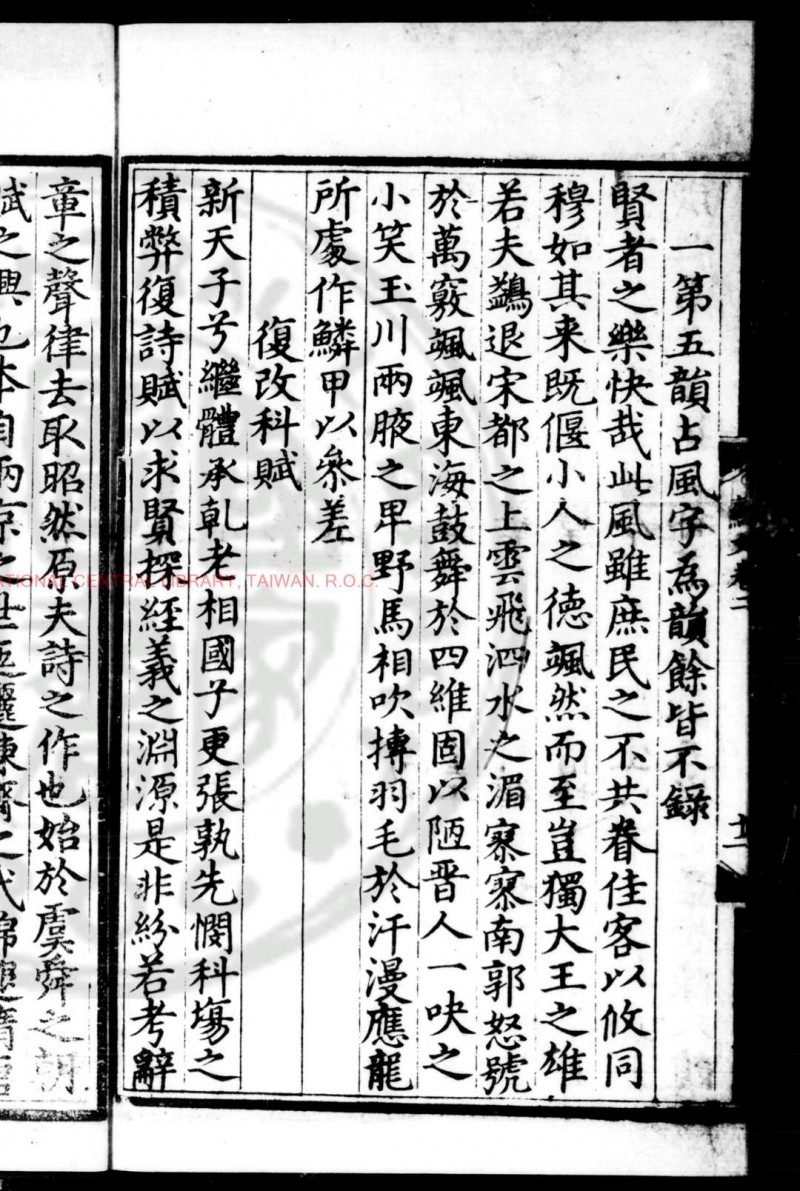 一第五韻占風字為韻餘皆不錄
賢者之樂快哉此風雖庶民之不共眷佳客以攸同
穆如其来既偃小人之徳颯然而至豈獨大王之雄
若夫鷁退宋都之上雲飛泗水之湄寥寥南郭怒號
於萬竅颯颯東海鼓舞於四維固以陋晋人一吷之
小笑玉川兩腋之卑野馬相吹摶羽毛於汗漫應龍
所處作鱗甲以參差
復改科賦
新天子兮繼體承乹老相國子更張孰先憫科塲之
積弊復詩賦以求賢探經義之淵源是非紛若考辭
章之聲律去取昭然原夫詩之作也始於虞舜之朝
賦之興也本自兩京之世
NATIONAL CENTRAL LIBRARY, TAIWAN. R.O.C.